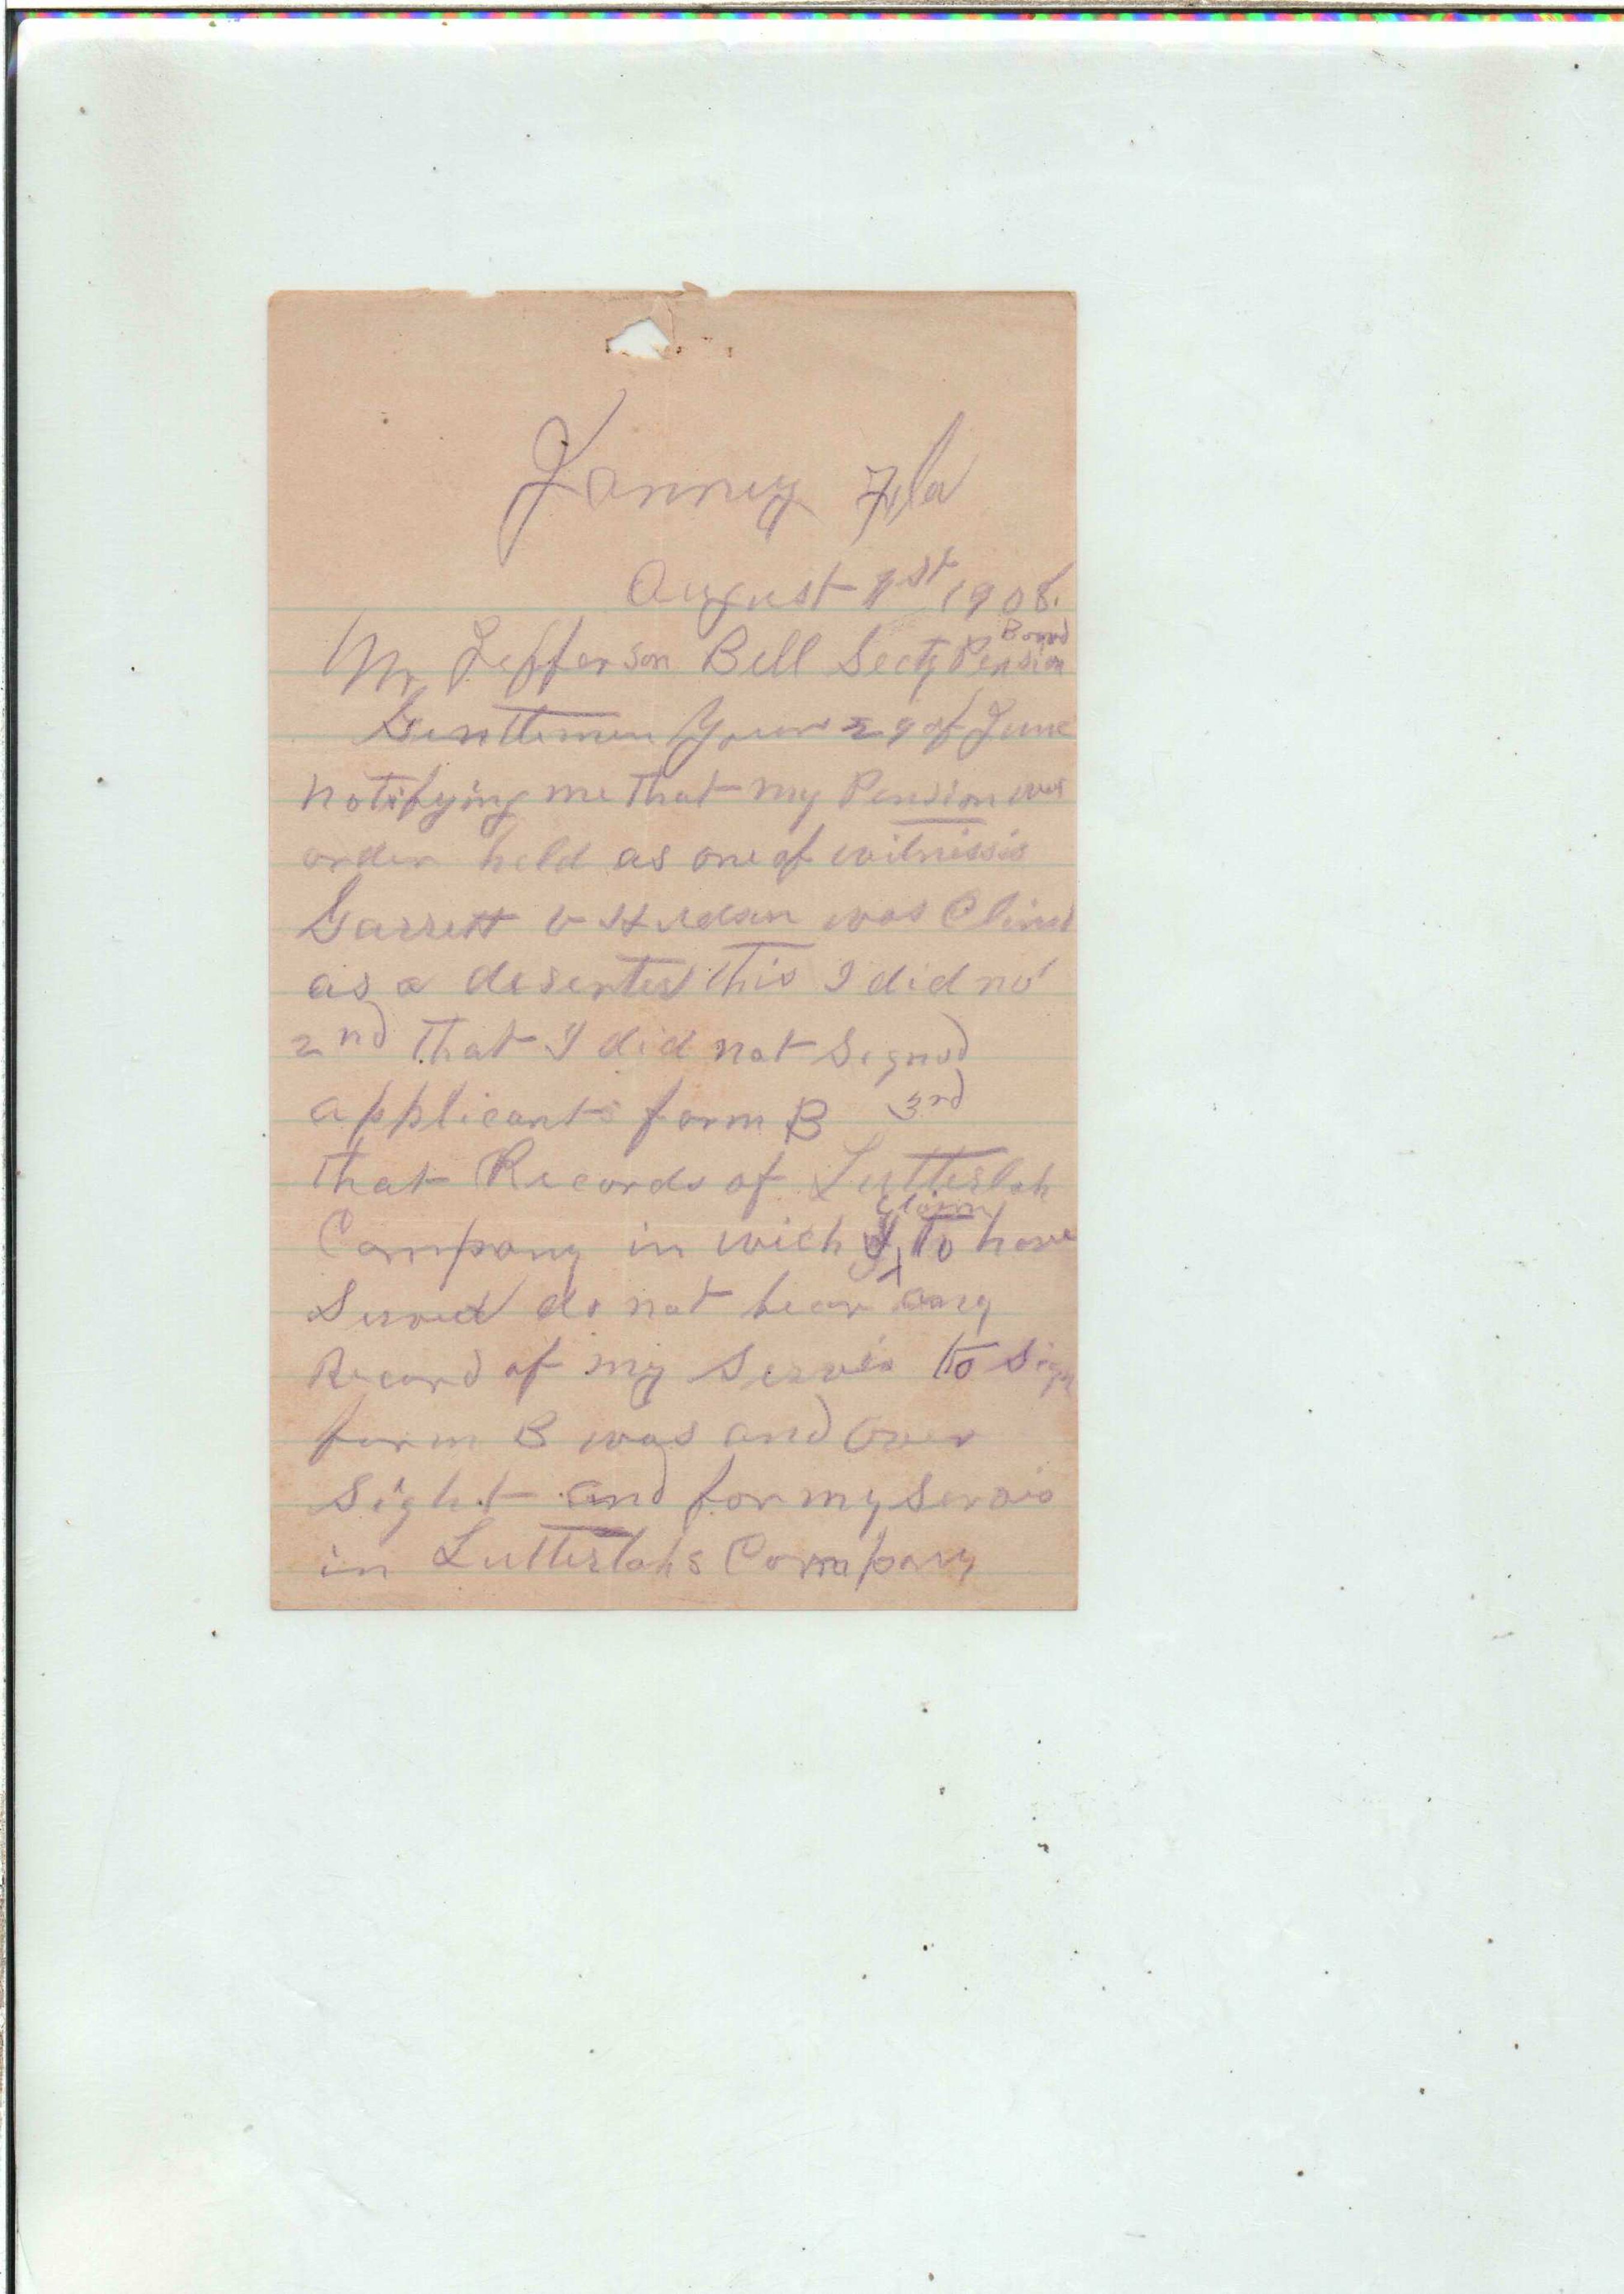 Janney Fla
August 1st 1908.
Mr Jefferson Bell Secty Pension Board
Genttemen Your 29 of June
notifying me that my Pension was
order held as one of witnissis
Garrett V Hudson was Clind
as a deserter this I did no
2nd That I did not Signed
applicants form B 3rd
that Records of Lutterloh
Company in wich I Claim to have
Served do not bear any
Record of my Servis to Sign
form B was and over
Sight and for my Servis
in Lutterlohs Company